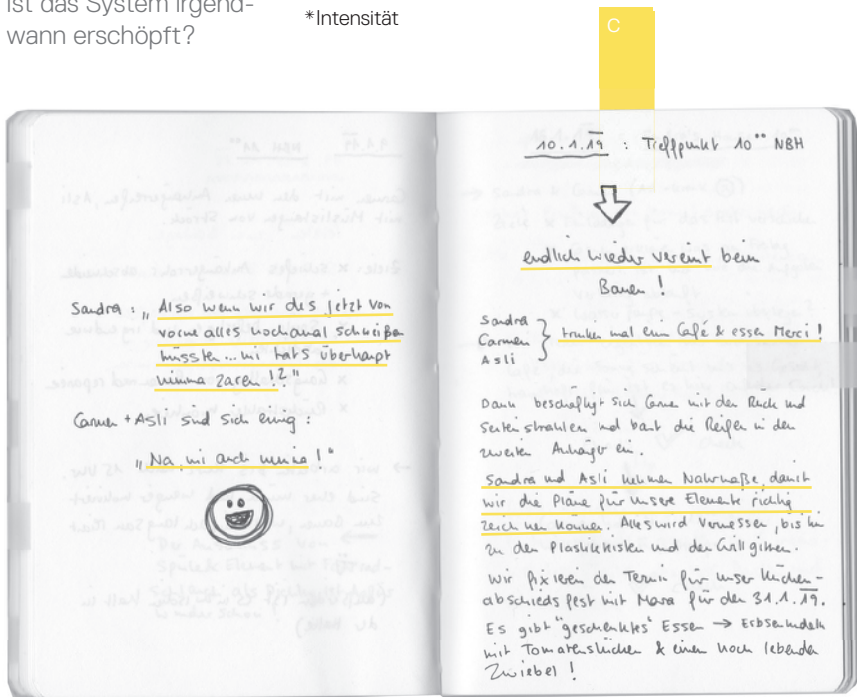 ist das System irgend-
wann erschöpft?
*Intensität
C
Sandra: „Also wenn wir des jetzt von
vorne alles nochamal schweißen
müssten... mi hats überhaupt
nimma zaren!?"
Carmen + Asli sind sich einig:
„Na, mi auch nimma!"
10.1.19 : Treffpunkt 10°° NBH
endlich wieder vereint beim
Bauen!
Sandra
Carmen } trinken mal ein Café & essen Merci!
Asli
Dann beschäftigt sich Carmen mit den Rück und
Seitenstrahlen und baut die Reifen in den
zweiten Anhänger ein.
Sandra und Asli nehmen Naturmaße, damit
wir die Pläne für unsere Elemente richtig
zeichnen können. Alles wird vermessen, bis hin
zu den Plastikkisten und den Grillgittern.
Wir fixieren den Termin für unser Küchen-
abschiedsfest mit Mara für den 31.1.19.
Es gibt "geschenktes" Essen → Erbsennudeln
mit Tomatenstücken & einer noch lebenden
Zwiebel!